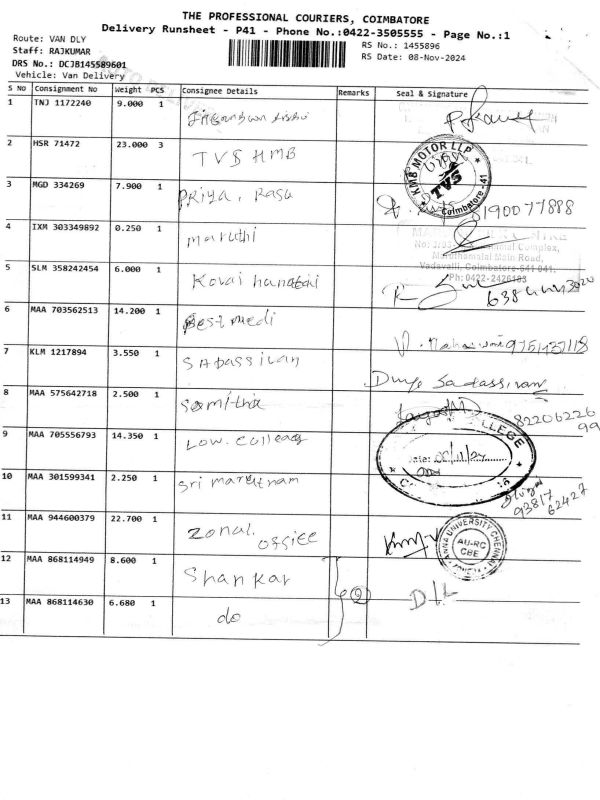 THE PROFESSIONAL COURIERS, COIMBATORE
Delivery Runsheet - P41 - Phone No.:0422-3505555 - Page No.:1
Route: VAN DLY
RS No.: 1455896
Staff: RAJKUMAR
RS Date: 08-Nov-2024
DRS No.: DCJB145589601
Vehicle: Van Delivery
S No Consignment No Weight PCS Consignee Details Remarks Seal & Signature
1 TNJ 1172240 9.000 1
2 HSR 71472 23.000 3 TVS HMB
KMB MOTOR LLP
TVS
Coimbatore - 41
3 MGD 334269 7.900 1 Priya, Rasu 8190077888
4 IXM 303349892 0.250 1 maruthi
Complex,
Maruthamalai Main Road,
Vadavalli, Coimbatore-641 041.
Ph: 0422-2426183
5 SLM 358242454 6.000 1 Kovai
6 MAA 703562513 14.200 1 Best medi
7 KLM 1217894 3.550 1 SADASSIVAN
Sadassivan
8 MAA 575642718 2.500 1
82206226
99
9 MAA 705556793 14.350 1 Law. College
COLLEGE
Date:
10 MAA 301599341 2.250 1 Sri
93817
62427
11 MAA 944600379 22.700 1 Zonal office
ANNA UNIVERSITY CHENNAI
AU-RC
CBE
12 MAA 868114949 8.600 1 Shankar
13 MAA 868114630 6.680 1 do